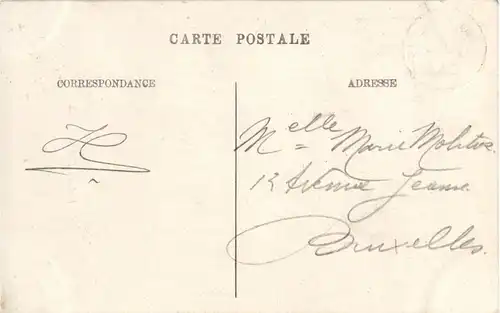 CARTE POSTALE
CORRESPONDANCE
ADRESSE
H
Melle = Marie Molitor
12 Avenue Jeanne
Bruxelles.